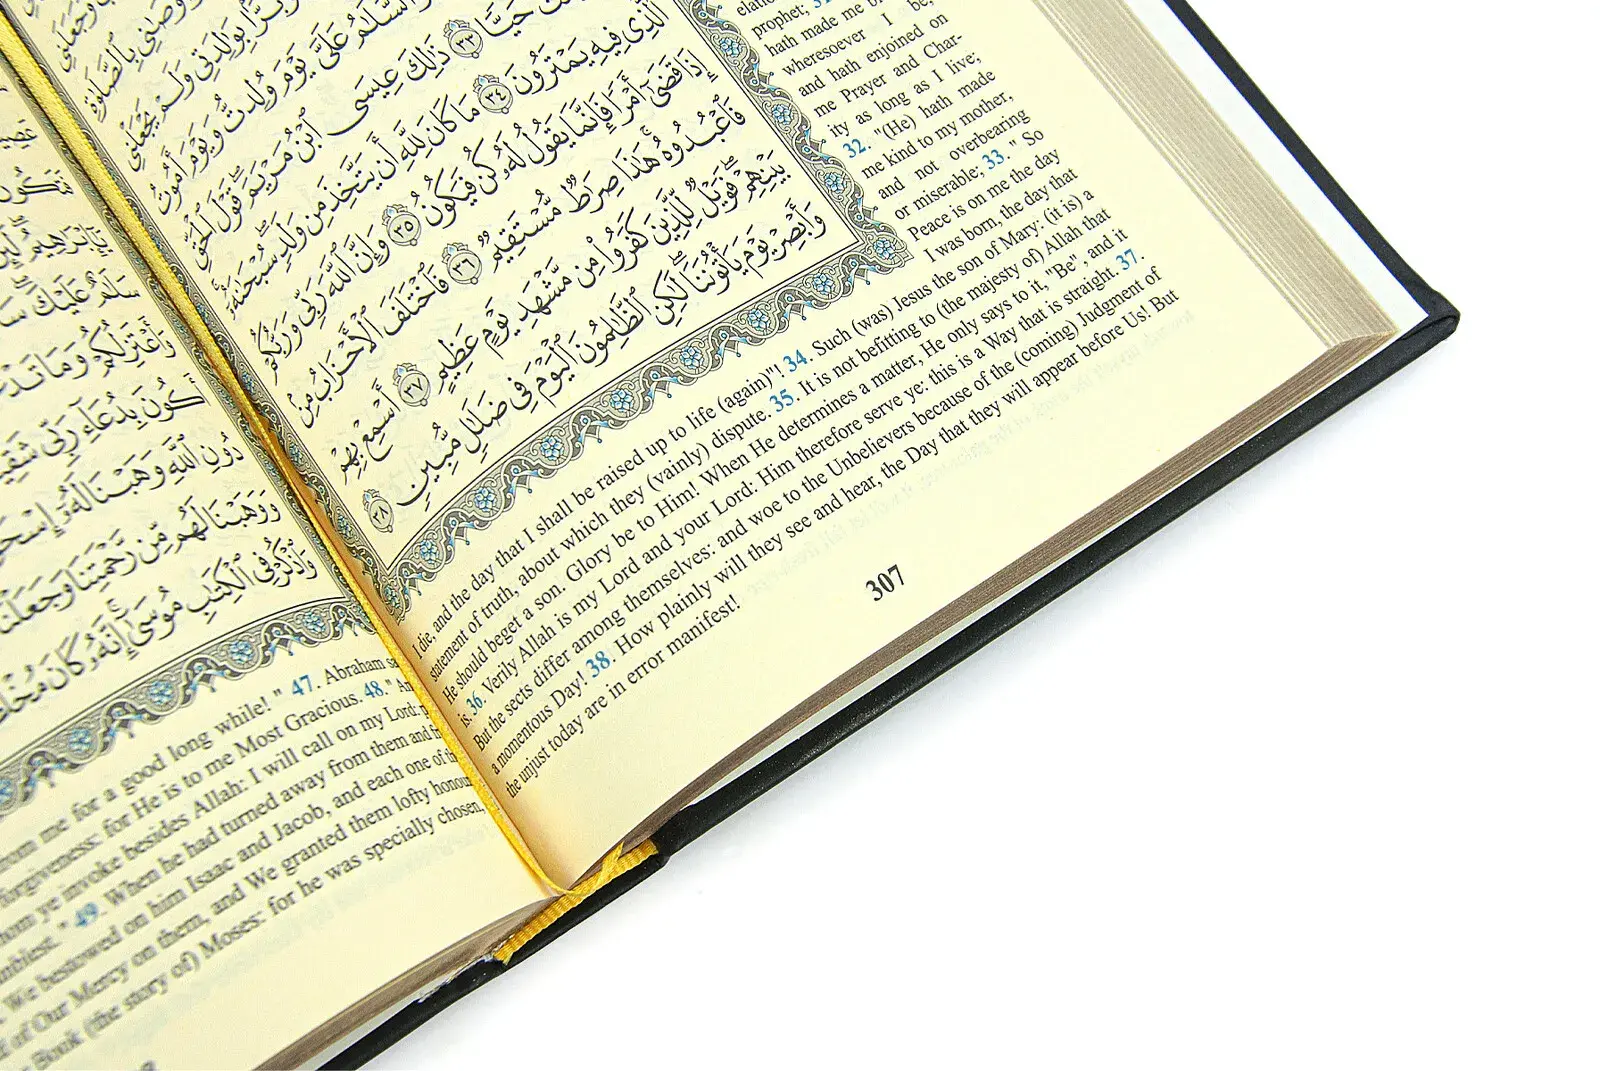 وَجَعَلَنِي
بِٱلصَّلَوٰةِ
بِوَٰلِدَتِي وَلَمْ يَجْعَلْنِي
وَٱلسَّلَٰمُ عَلَىَّ يَوْمَ وُلِدتُّ وَيَوْمَ أَمُوتُ
حَيًّا ٣٣ ذَٰلِكَ عِيسَى ٱبْنُ مَرْيَمَ قَوْلَ ٱلْحَقِّ
ٱلَّذِى فِيهِ يَمْتَرُونَ ٣٤ مَا كَانَ لِلَّهِ أَن يَتَّخِذَ مِن وَلَدٍ سُبْحَٰنَهُۥٓ
إِذَا قَضَىٰٓ أَمْرًا فَإِنَّمَا يَقُولُ لَهُۥ كُن فَيَكُونُ ٣٥ وَإِنَّ ٱللَّهَ رَبِّى وَرَبُّكُمْ
فَٱعْبُدُوهُ هَٰذَا صِرَٰطٌ مُّسْتَقِيمٌ ٣٦ فَٱخْتَلَفَ ٱلْأَحْزَابُ مِنۢ
بَيْنِهِمْ فَوَيْلٌ لِّلَّذِينَ كَفَرُوا۟ مِن مَّشْهَدِ يَوْمٍ عَظِيمٍ ٣٧ أَسْمِعْ بِهِمْ
وَأَبْصِرْ يَوْمَ يَأْتُونَنَا لَٰكِنِ ٱلظَّٰلِمُونَ ٱلْيَوْمَ فِى ضَلَٰلٍ مُّبِينٍ ٣٨
prophet; 31.
hath made me b
wheresoever I be,
and hath enjoined on
me Prayer and Char-
ity as long as I live;
32. "(He) hath made
me kind to my mother,
and not overbearing
or miserable; 33. " So
Peace is on me the day
I was born, the day that
I die, and the day that I shall be raised up to life (again)"! 34. Such (was) Jesus the son of Mary: (it is) a
statement of truth, about which they (vainly) dispute. 35. It is not befitting to (the majesty of) Allah that
He should beget a son. Glory be to Him! When He determines a matter, He only says to it, "Be" , and it
is. 36. Verily Allah is my Lord and your Lord: Him therefore serve ye: this is a Way that is straight. 37 .
But the sects differ among themselves: and woe to the Unbelievers because of the (coming) Judgment of
a momentous Day! 38. How plainly will they see and hear, the Day that they will appear before Us! But
the unjust today are in error manifest!
307
سَلَٰمٌ عَلَيْكَ
وَأَعْتَزِلُكُمْ وَمَا تَدْعُ
بِدُعَآءِ رَبِّى
دُونِ ٱللَّهِ وَهَبْنَا لَهُۥٓ إِسْحَٰ
وَوَهَبْنَا لَهُم مِّن رَّحْمَتِنَا وَجَعَلْنَا
وَٱذْكُرْ فِى ٱلْكِتَٰبِ مُوسَىٰٓ إِنَّهُۥ كَانَ مُخْلَ
from me for a good long while! " 47. Abraham sa
forgiveness: for He is to me Most Gracious. 48." An
whom ye invoke besides Allah: I will call on my Lord:
mblest. " 49. When he had turned away from them and
We bestowed on him Isaac and Jacob, and each one of th
of Our Mercy on them, and We granted them lofty honou
Book (the story of) Moses: for he was specially chosen,